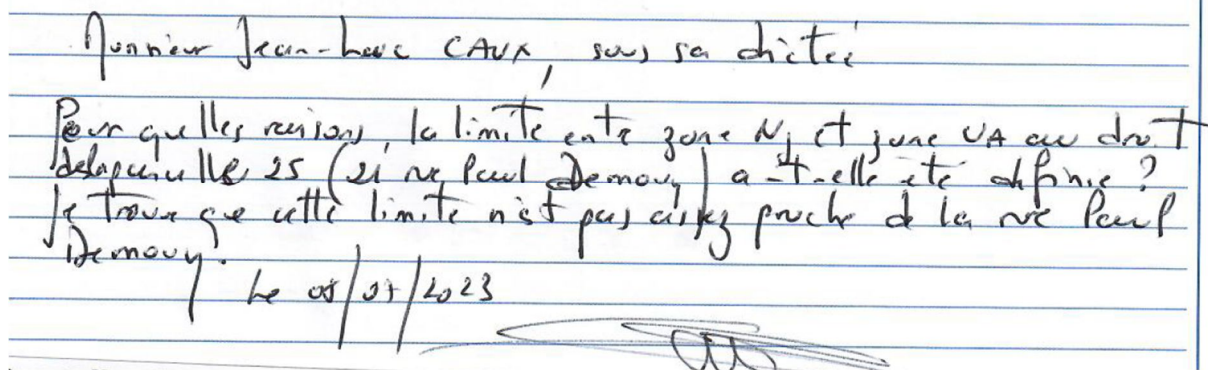 Monsieur Jean-Luc CAUX, sous sa dictée
Pour quelles raisons, la limite entre zone Nj et zone UA au droit
de la parcelle 25 (21 rue Paul Demouy) a-t-elle été définie ?
Je trouve que cette limite n'est pas assez proche de la rue Paul
Demouy.
Le /2023